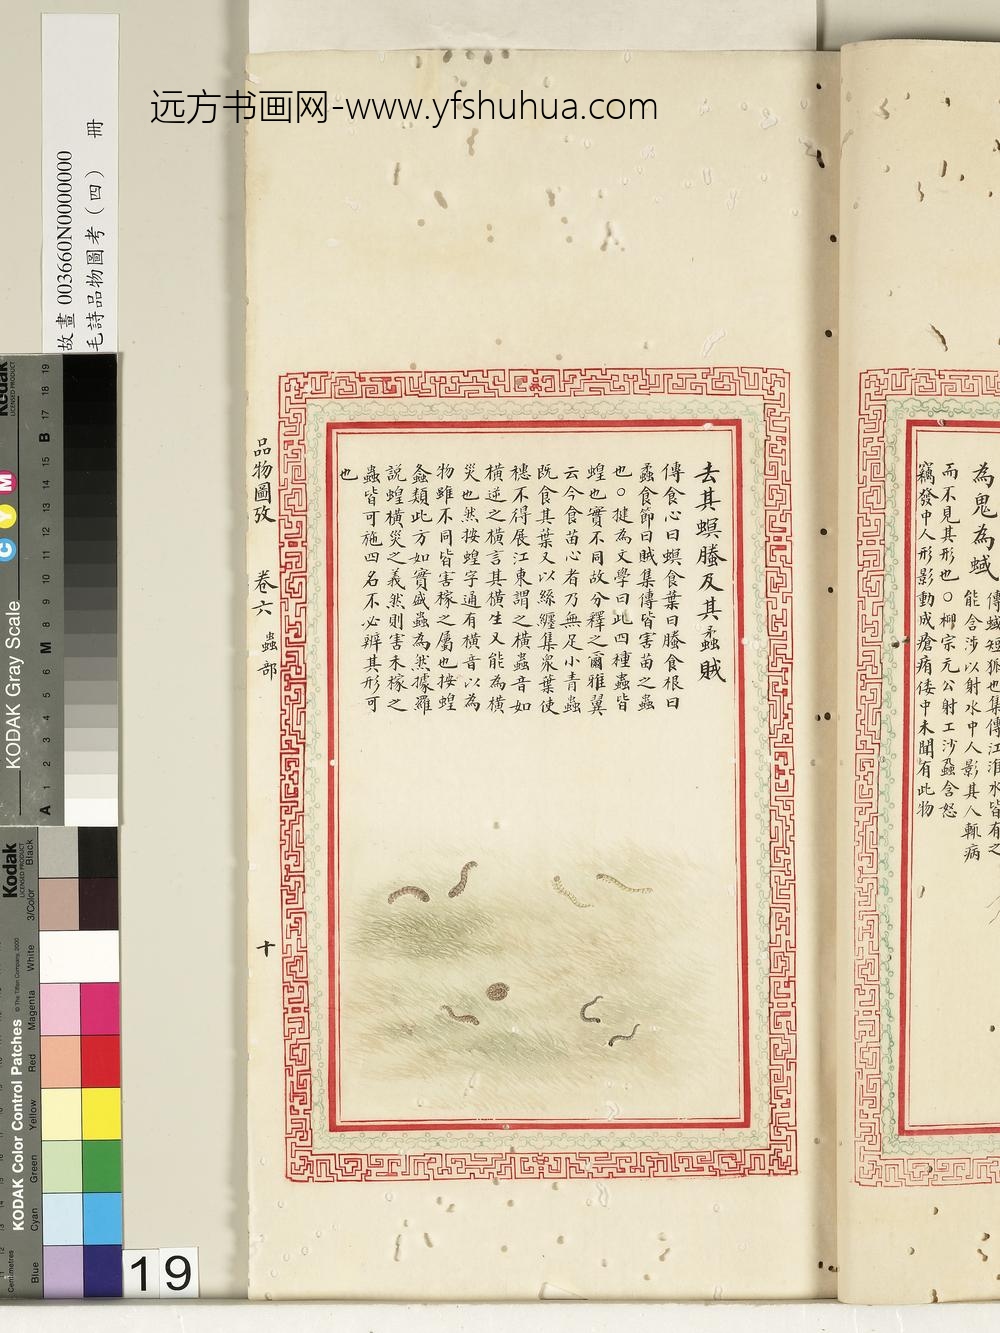 远方书画网-www.yfshuhua.com
故畫 003660N0000000
毛詩品物圖考（四） 冊
為鬼為蜮
傳蜮短狐也集傳江淮水皆有之
能含沙以射水中人影其人輒病
而不見其形也○柳宗元公射工沙蝨含怒
竊發中人形影動成瘡痏倭中未聞有此物
去其螟螣及其蟊賊
傳食心曰螟食葉曰螣食根曰
蟊食節曰賊集傳皆害苗之蟲
也○犍為文學曰此四種蟲皆
蝗也實不同故分釋之爾雅翼
云今食苗心者乃無足小青蟲
既食其葉又以絲纏集衆葉使
穗不得展江東謂之橫蟲音如
橫逆之橫言其橫生又能為橫
災也然按蝗字通有橫音以為
物雖不同皆害稼之屬也按蝗
螽類此方如實盛蟲為然據羅
說蝗橫災之義然則害禾稼之
蟲皆可施四名不必辨其形可
也
品物圖攷 卷六 蟲部 十
Kodak
LICENSED PRODUCT
KODAK Gray Scale
C Y M
A 1 2 3 4 5 6 M 8 9 10 11 12 13 14 15 B 17 18 19
Kodak
LICENSED PRODUCT
KODAK Color Control Patches
© The Tiffen Company, 2000
Centimetres
Blue Cyan Green Yellow Red Magenta White 3/Color Black
19